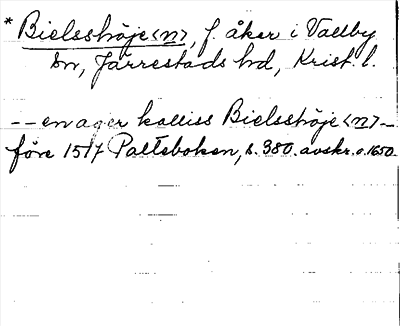 * Bielsshöje<n>, f. åker i Vallby
sn, Järrestads hd, Krist. l.
-- en ager kalliss Bielsshöje <n> --
före 1517 Palteboken, s. 380. avskr. o. 1650.